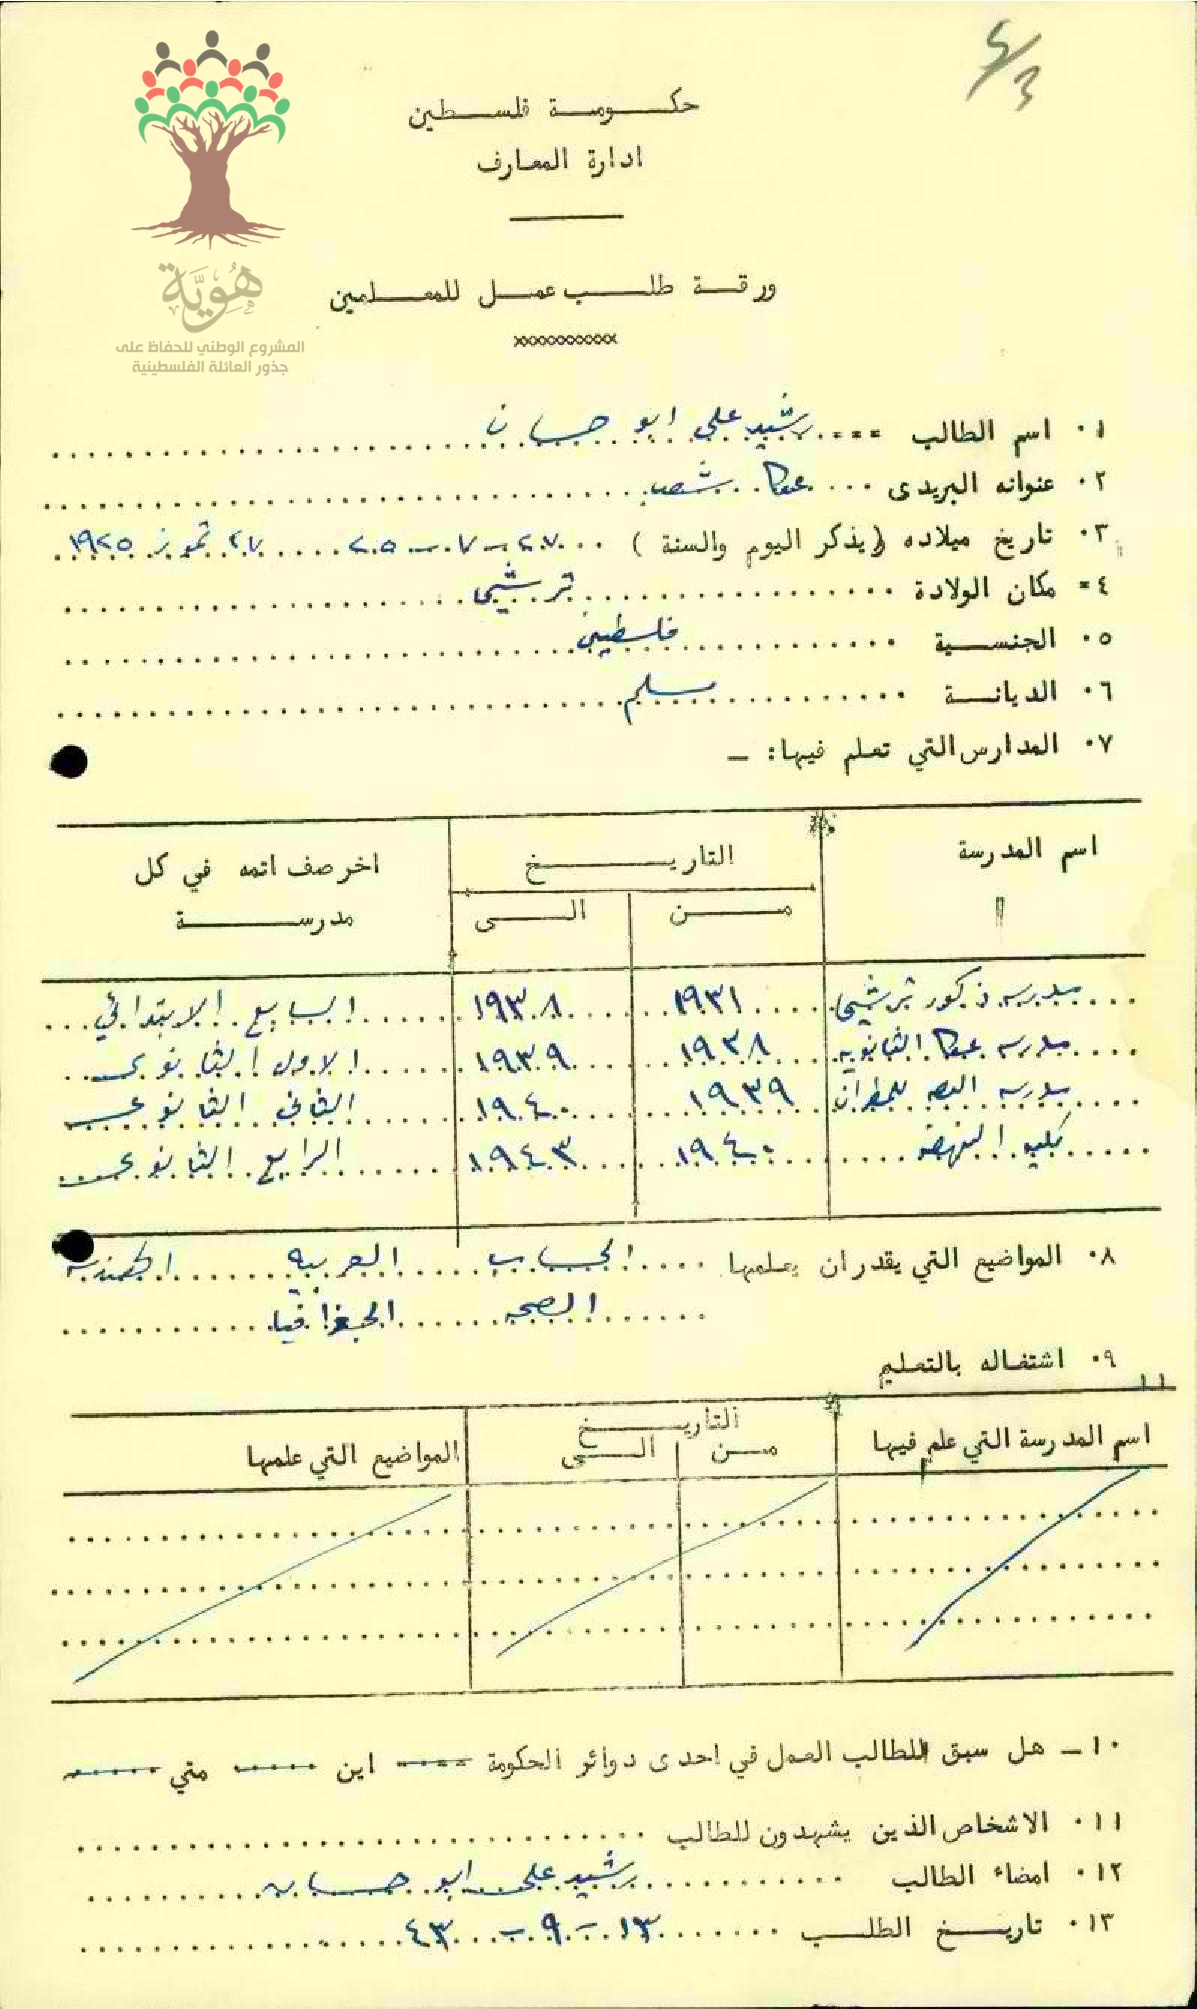 ٤/٣
حكومة فلسطين
ادارة المعارف
هُوِيَّة
المشروع الوطني للحفاظ على
جذور العائلة الفلسطينية
ورقة طلب عمل للمعلمين
xxxxxxxxxxxx
١٠ اسم الطالب رشيد علي ابو حسان
٢٠ عنوانه البريدى عكا
٣٠ تاريخ ميلاده (يذكر اليوم والسنة) ٢٧ - ٧ - ٢٥ ٢٧ تموز ١٩٢٥
٤= مكان الولادة ترشيحا
٥٠ الجنسية فلسطيني
٦٠ الديانة مسلم
٧٠ المدارس التي تعلم فيها: -
اسم المدرسة التاريخ اخر صف اتمه في كل
من الى مدرسة
مدرسة ذكور ترشيحا ١٩٣١ ١٩٣٨ السابع الابتدائي
مدرسه عكا الثانويه ١٩٣٨ ١٩٣٩ الاول الثانوى
مدرسه البصه للمطران ١٩٣٩ ١٩٤٠ الثاني الثانوي
كليه النهضه ١٩٤٠ ١٩٤٣ الرابع الثانوى
٨٠ المواضيع التي يقدران يعلمها الحساب العربيه الهندسه
الصحه الجغرافيا
٩٠ اشتغاله بالتعليم
التاريخ
اسم المدرسة التي علم فيها من الى المواضيع التي علمها
١٠- هل سبق للطالب العمل في احدى دوائر الحكومة اين متي
١١٠ الاشخاص الذين يشهدون للطالب
١٢٠ امضاء الطالب رشيد علي ابو حسان
١٣٠ تاريخ الطلب ١٣ - ٩ - ٤٣